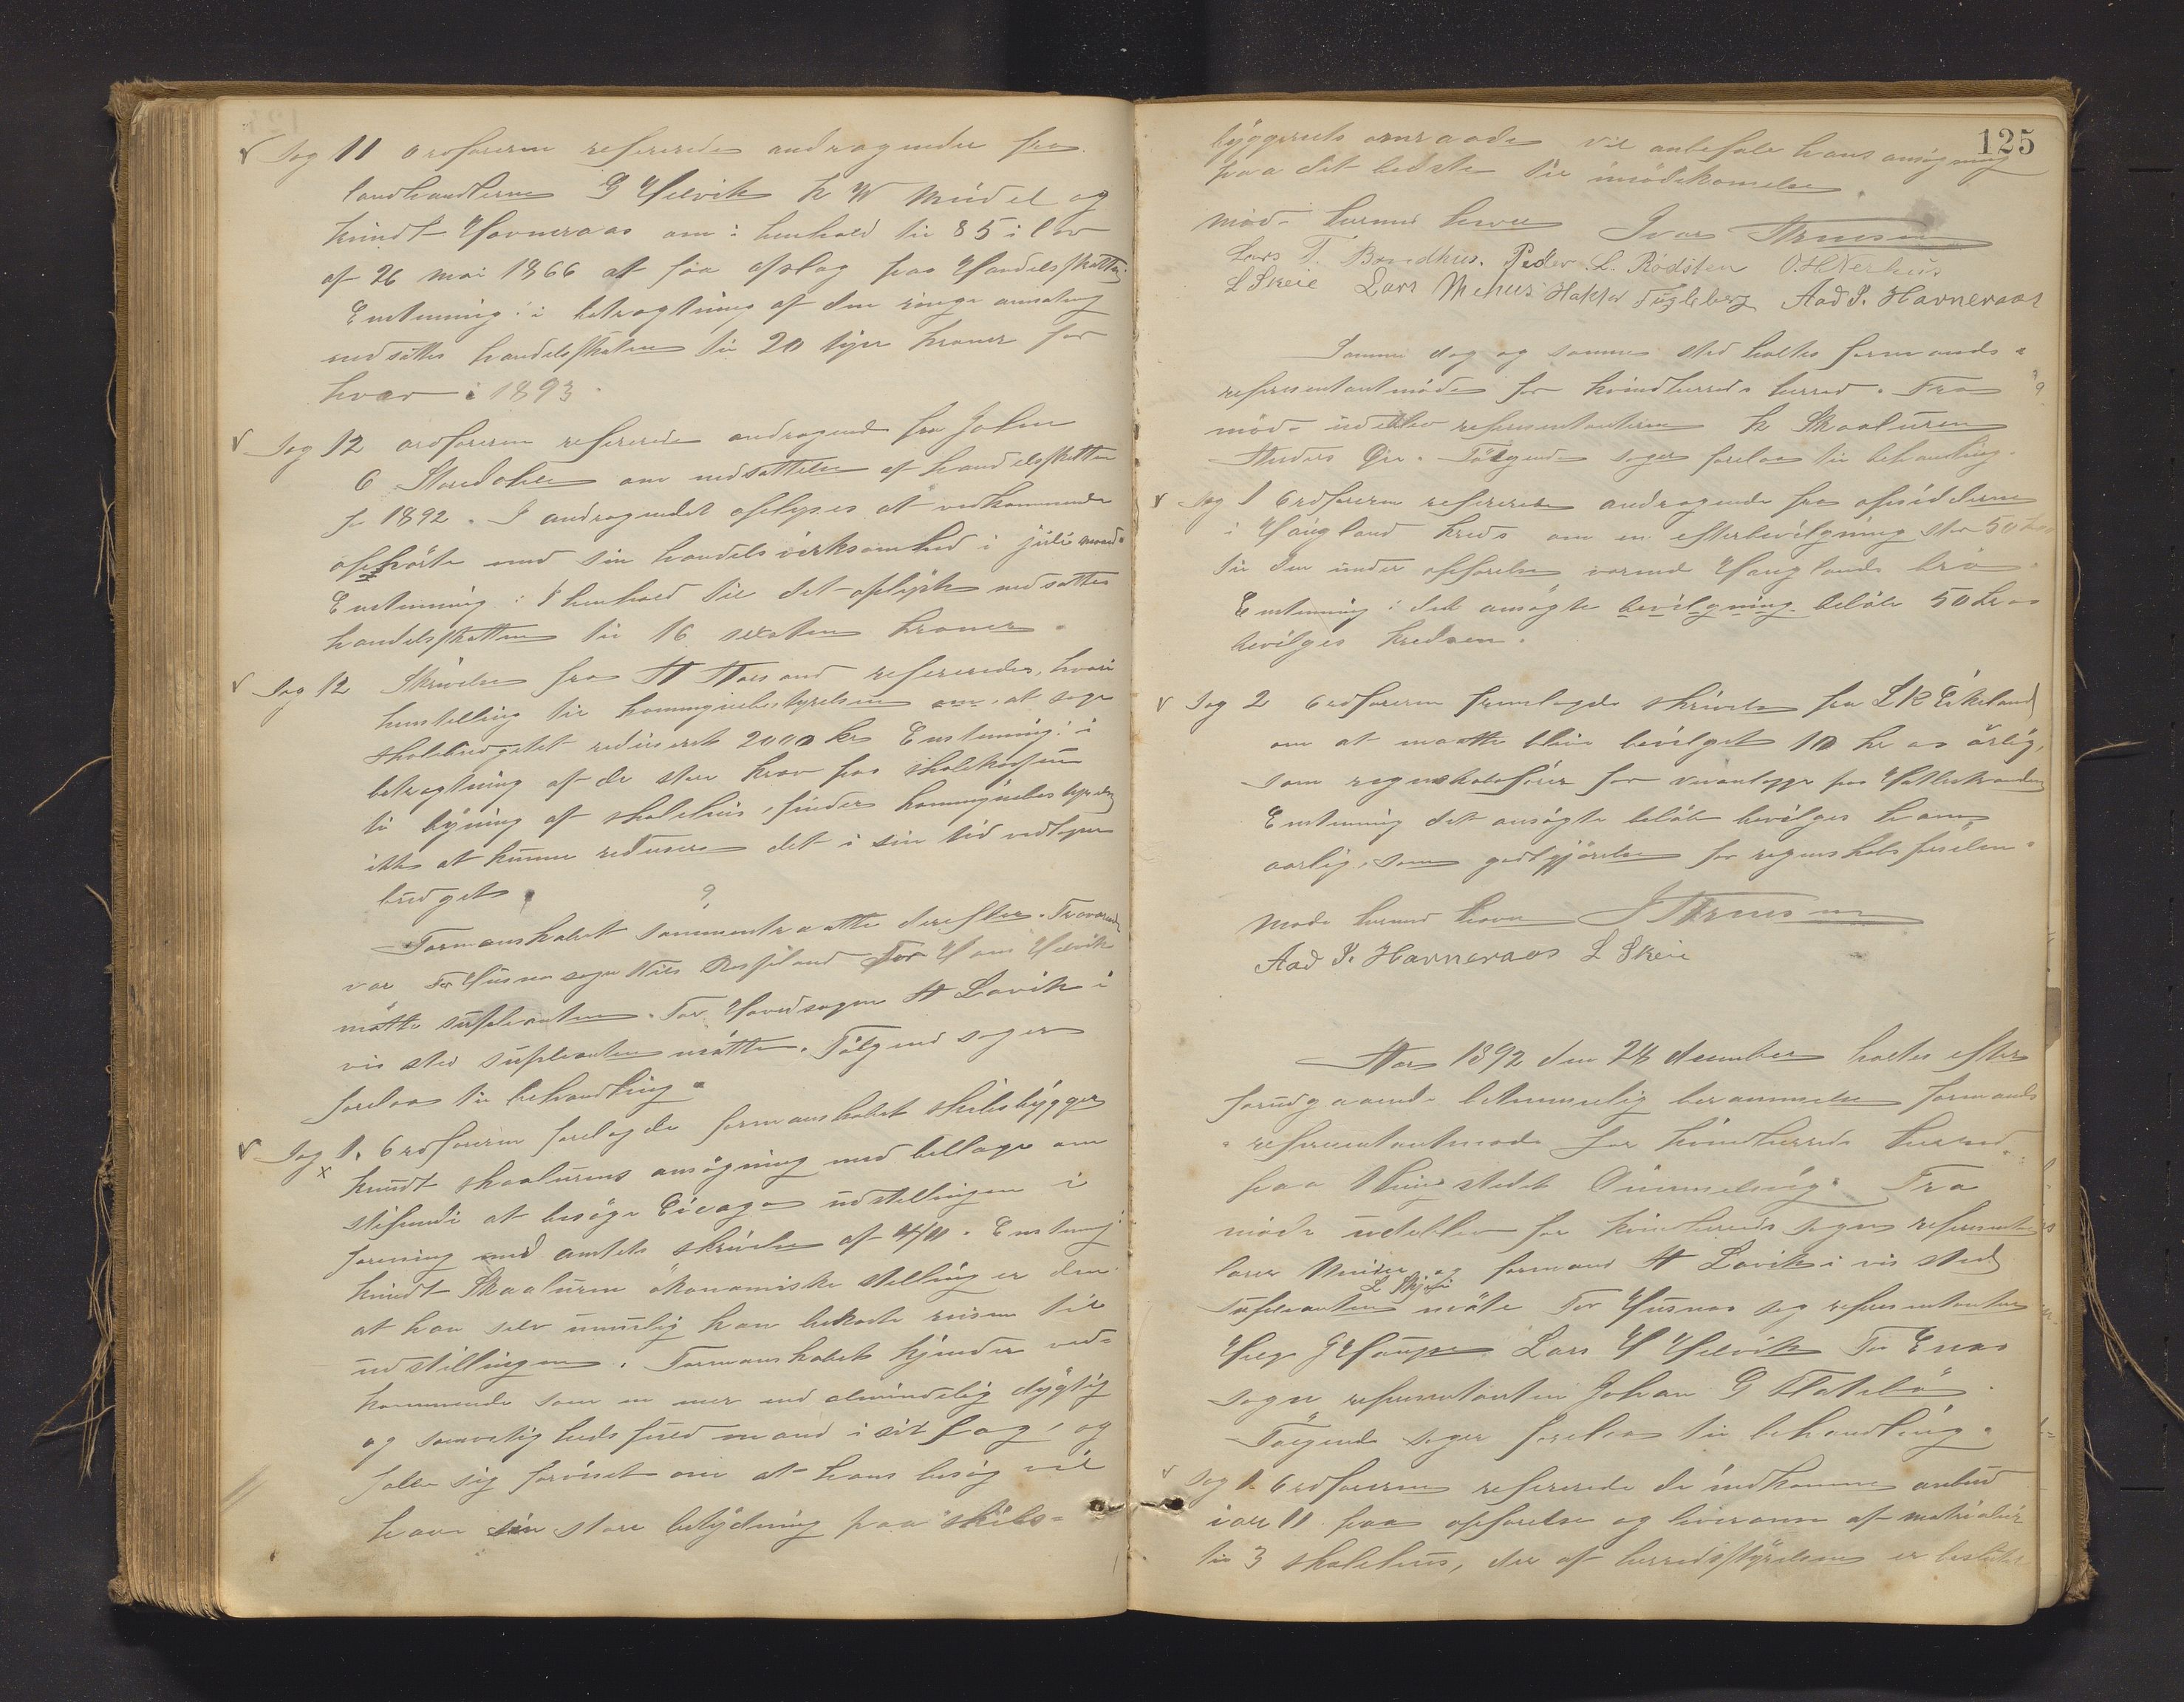 Sag 11 ordføreren refererede andragender fra
landhandlerne G Helvik K W Mudel og
Knudt Havneraas om i henhold til § 5 i lov
af 26 mai 1866 at faa afslag paa Handelsskatten.
Enstemmig: i betragtning af den ringe omsætning
nedsættes handelsskatten til 20 tyve kroner for
hver i 1893.
Sag 12 ordføreren refererede andragende fra John
O om nedsættelse af handelsskatten
f 1892. I andragendet oplyses at vedkommende
ophörte med sin handelsvirksomhed i juli maaned.
Enstemmig: I henhold til det oplyste nedsættes
handelsskatten til 16 sexten kroner.
Sag 12 Skrivelse fra A refereredes, hvori
henstilling til kommunebestyrelsen om at søge
skolebudgetet reduseret 2000 kr Enstemmig: i
betragtning af de store krav paa skolekassen
til bygning af skolehus, finder kommunebestyrelsen
ikke at kunne redusere det i sin tid vedtagne
budget.
Formanskabet sammentraatte derefter. Fraværende
var For Husnes sogn Nils For Hans Helvik
mötte suppleanten. For Hovedsogn A Lavik i
vis sted supleanten mötte. Fölgende sager
forelaa til behandling.
Sag 1. Ordføreren forelagde formanskabet skibsbygger
Knudt Skaalurens ansögning med billage om
stipendie at besöge Cicago udstillingen i
forening med amtets skrivelse af 4/11. Enstemmig
Knudt Skaaluren ökonomiske stelling er den
at han selv umulig kan bekoste reisen til
udstillingen. Formanskabet kjender ved-
kommende som en mer end almindelig dygtig
og samvetighedsfuld mand i sit fag, og
föler sig forviset om at hans besög vil
have sin store betydning paa skibs=
125
byggeriets omraade vil anbefale hans ansögning
paa det bedste til imödekomelse.
Möde hermed hevet Ivar Arnesen
Lars T. Bondhus. Peder L. Rödsten O. H Nerhus
L Skeie Lars Mehus Haktor Fugleberg Aad P. Havneraas
Samme dag og samme sted holtes formands=
representantmöde for Kvindherreds herred. Fra
möde udeblev representanterne K Skaaluren
Anders Øie. Fölgende sager forelaa til behandling.
Sag 1 Ordföreren refererede andragende fra opsidderne
i Haugland kreds om en efterbevilgning stor 50 kr
til den under opførelse værende Hauglands bro.
Enstemmig: det ansögte bevilgning beløb 50 kr
bevilges kredsen.
Sag 2 Ordføreren fremlagde skrivelse fra L K Eikeland
om at maatte blive bevilget 10 kr aarlig,
som regnskabsfører for paa
Enstemmig det ansögte beløb bevilges ham
aarlig, som godtgjörelse for regnskabsførselen.
Mode hermed hevet I Arnesen
Aad P. Havneraas L Skeie
Aar 1892 den 28 december holtes efter
forudgaaende betimmelig berammelse formands
representantmode for Kvindherreds herred
paa Thinstedet Ommelsvig. Fra
möde udeblev for Kvindherreds sogn representanten
lærer og formand A Lavik i vis sted
L Skjeie
Supleanten möte For Husnes sog representanter
Helge Lars H Helvik For Enes
sogn representanten Johan G Flatebö.
Fölgende sager forelaa til behandling.
Sag 1. Ordføreren refererede de indkomne anbud
paa opførelse og leveranse af matrialier
til 3 skolehus, der af herredsstyrelsen er besluttet